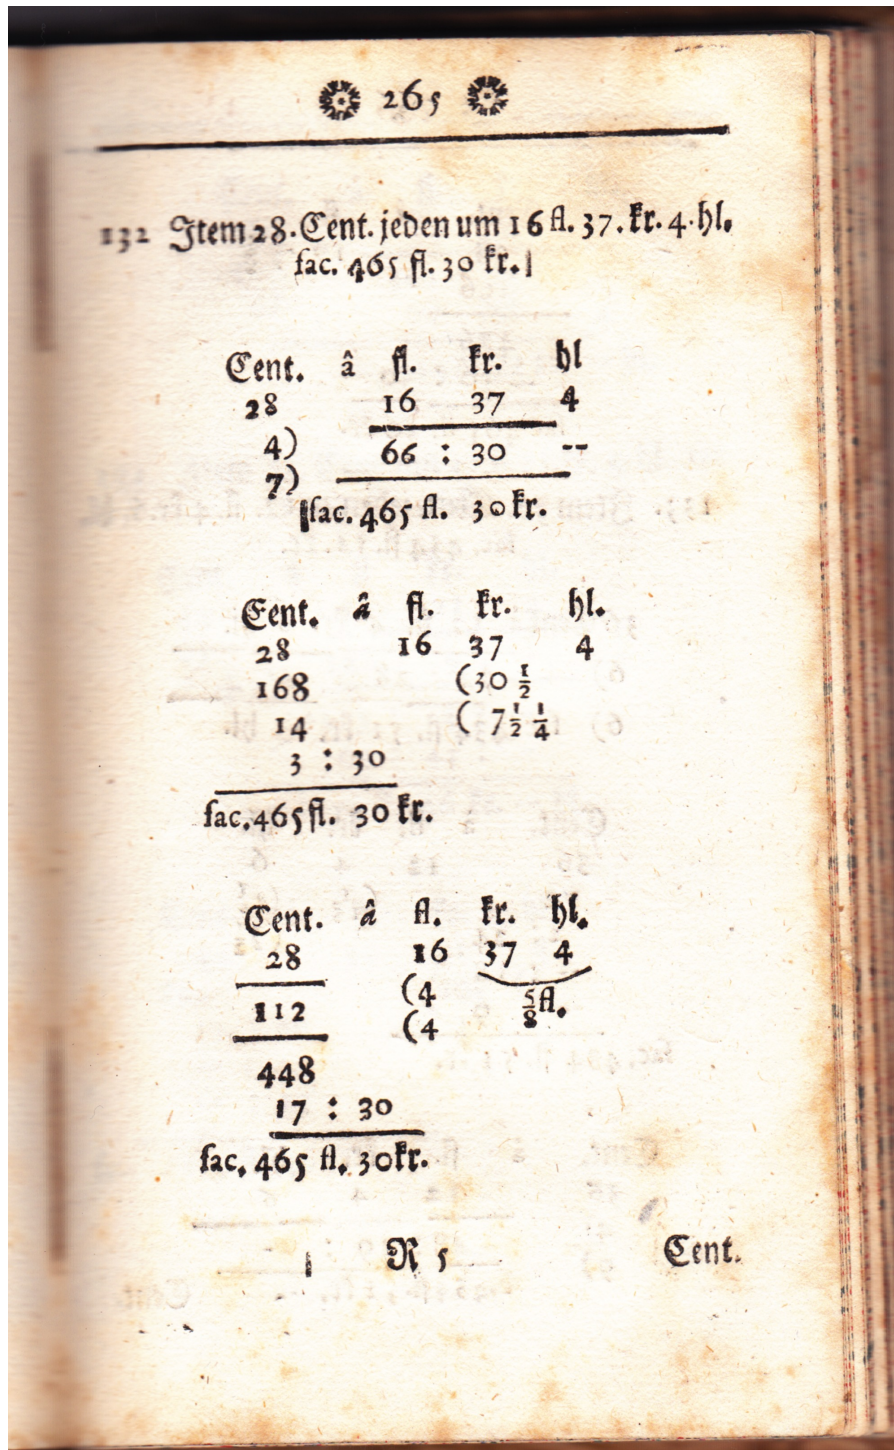 265
132 Item 28. Cent. jeden um 16 fl. 37. kr. 4. hl.
fac. 465 fl. 30 kr.
Cent. â fl. kr. hl
28 16 37 4
4) 66 : 30 --
7)
fac. 465 fl. 30 kr.
Cent. â fl. kr. hl.
28 16 37 4
168 (30 1/2
14 ( 7 1/2 1/4
3 : 30
fac. 465 fl. 30 kr.
Cent. â fl. kr. hl.
28 16 37 4
112 (4 5/8 fl.
(4
448
17 : 30
fac. 465 fl. 30 kr.
R 5 Cent.